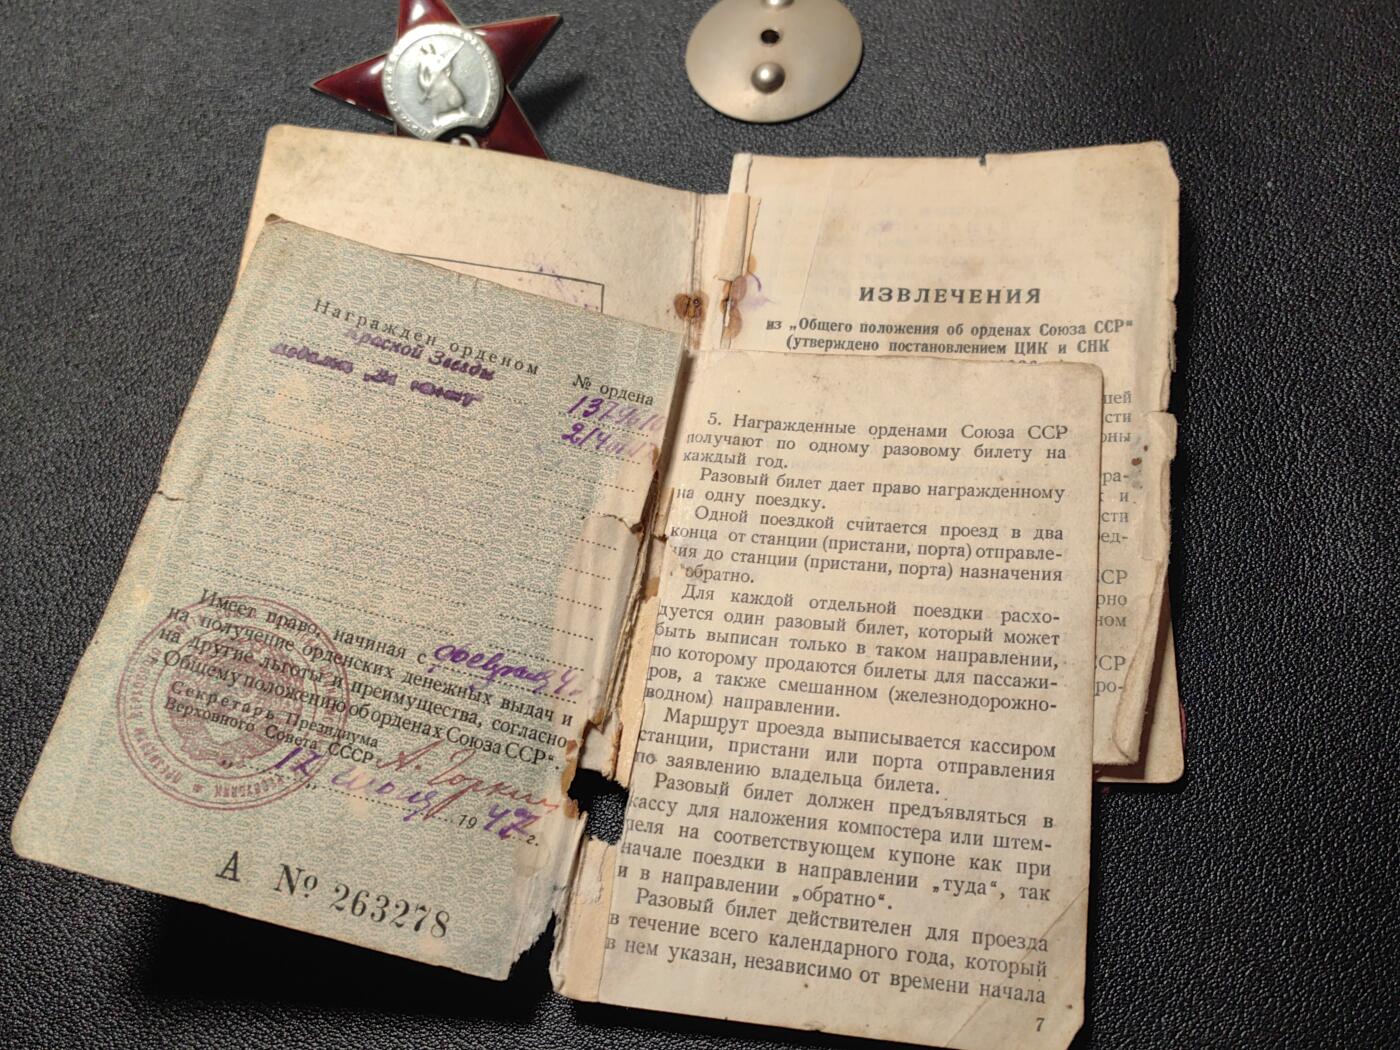 ИЗВЛЕЧЕНИЯ
из „Общего положения об орденах Союза ССР“
(утверждено постановлением ЦИК и СНК
шей
сти
оны
ра-
и
сти
ед-
СР
рно
ном
СР
ро-
Награжден орденом
Красной Звезды
медалью „За отвагу“
№ ордена
Имеет право, начиная с февраля
на получение орденских денежных выдач и
на другие льготы и преимущества, согласно
„Общему положению об орденах Союза ССР“.
Секретарь Президиума
Верховного Совета СССР: А. Горкин
„12“ июля 1947 г.
А № 263278
5. Награжденные орденами Союза ССР
получают по одному разовому билету на
каждый год.
Разовый билет дает право награжденному
на одну поездку.
Одной поездкой считается проезд в два
конца от станции (пристани, порта) отправле-
ния до станции (пристани, порта) назначения
и обратно.
Для каждой отдельной поездки расхо-
дуется один разовый билет, который может
быть выписан только в таком направлении,
по которому продаются билеты для пассажи-
ров, а также смешанном (железнодорожно-
водном) направлении.
Маршрут проезда выписывается кассиром
станции, пристани или порта отправления
по заявлению владельца билета.
Разовый билет должен предъявляться в
кассу для наложения компостера или штем-
пеля на соответствующем купоне как при
начале поездки в направлении „туда“, так
и в направлении „обратно“.
Разовый билет действителен для проезда
в течение всего календарного года, который
в нем указан, независимо от времени начала
7